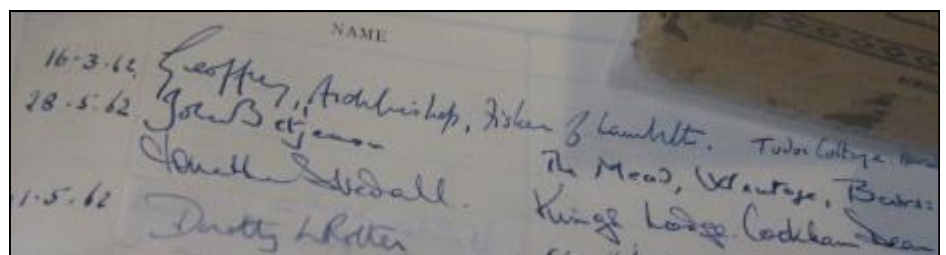 NAME
16-3-62 Geoffrey, Archbishop, Fisher of Lambeth. Tudor Cottage
28.5.62 John Betjeman The Mead, Wantage, Berks:
Jonathan Stedall. Kings Lodge. Cookham Dean
1.5.62 Dorothy